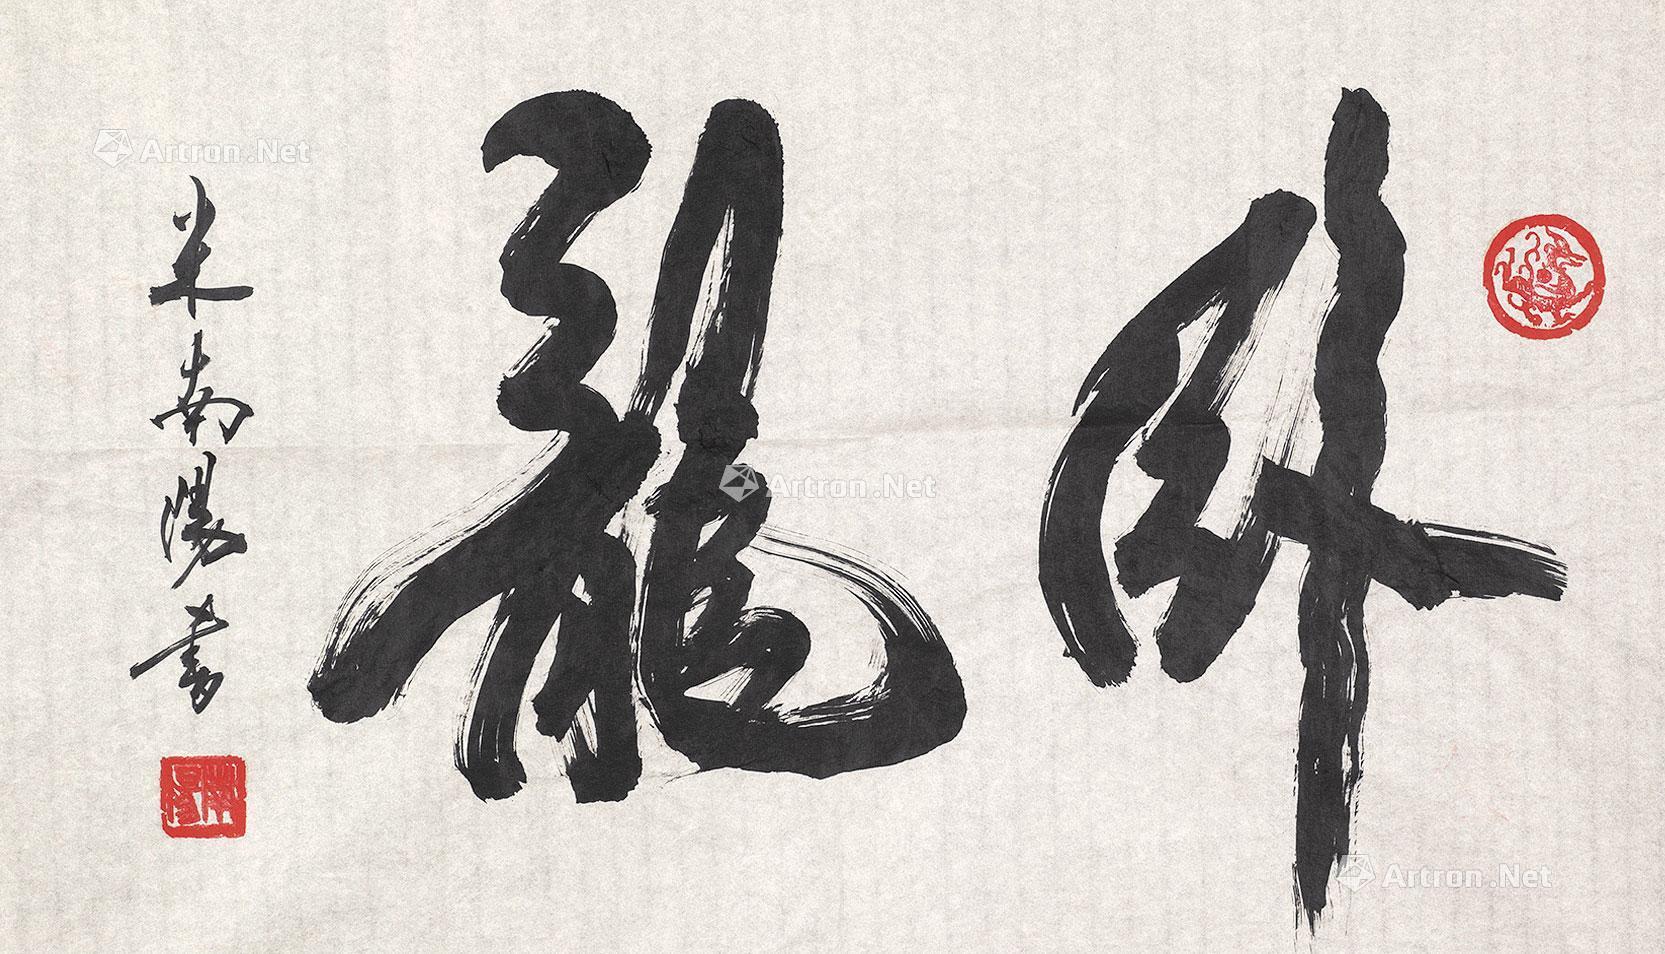 卧龍
米南陽書
Artron.Net
Artron.Net
Artron.Net